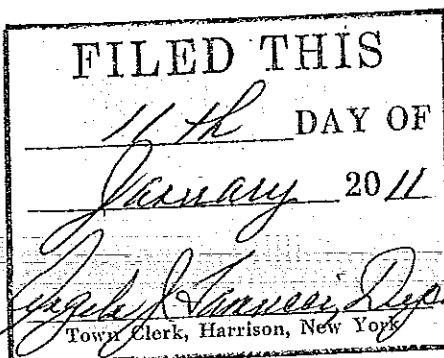 FILED THIS
11th DAY OF
January 2011
Angela
Town Clerk, Harrison, New York